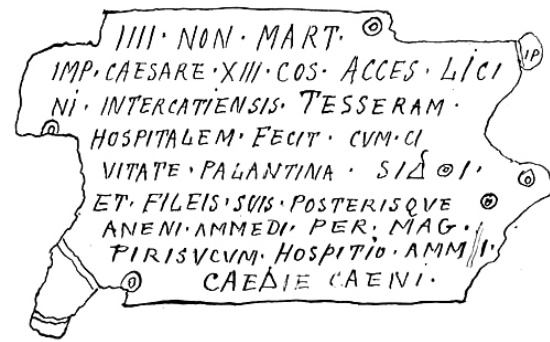 IIII · NON · MART ·
IMP · CAESARE · XIII · COS · ACCES · LICI
NI · INTERCATIENSIS · TESSERAM ·
HOSPITALEM · FECIT · CVM · CI
VITATE · PALANTINA ·
ET · FILEIS · SVIS · POSTERISQVE
ANENI · AMMEDI · PER · MAG ·
PIRISVCVM · HOSPITIO ·
CAENI ·